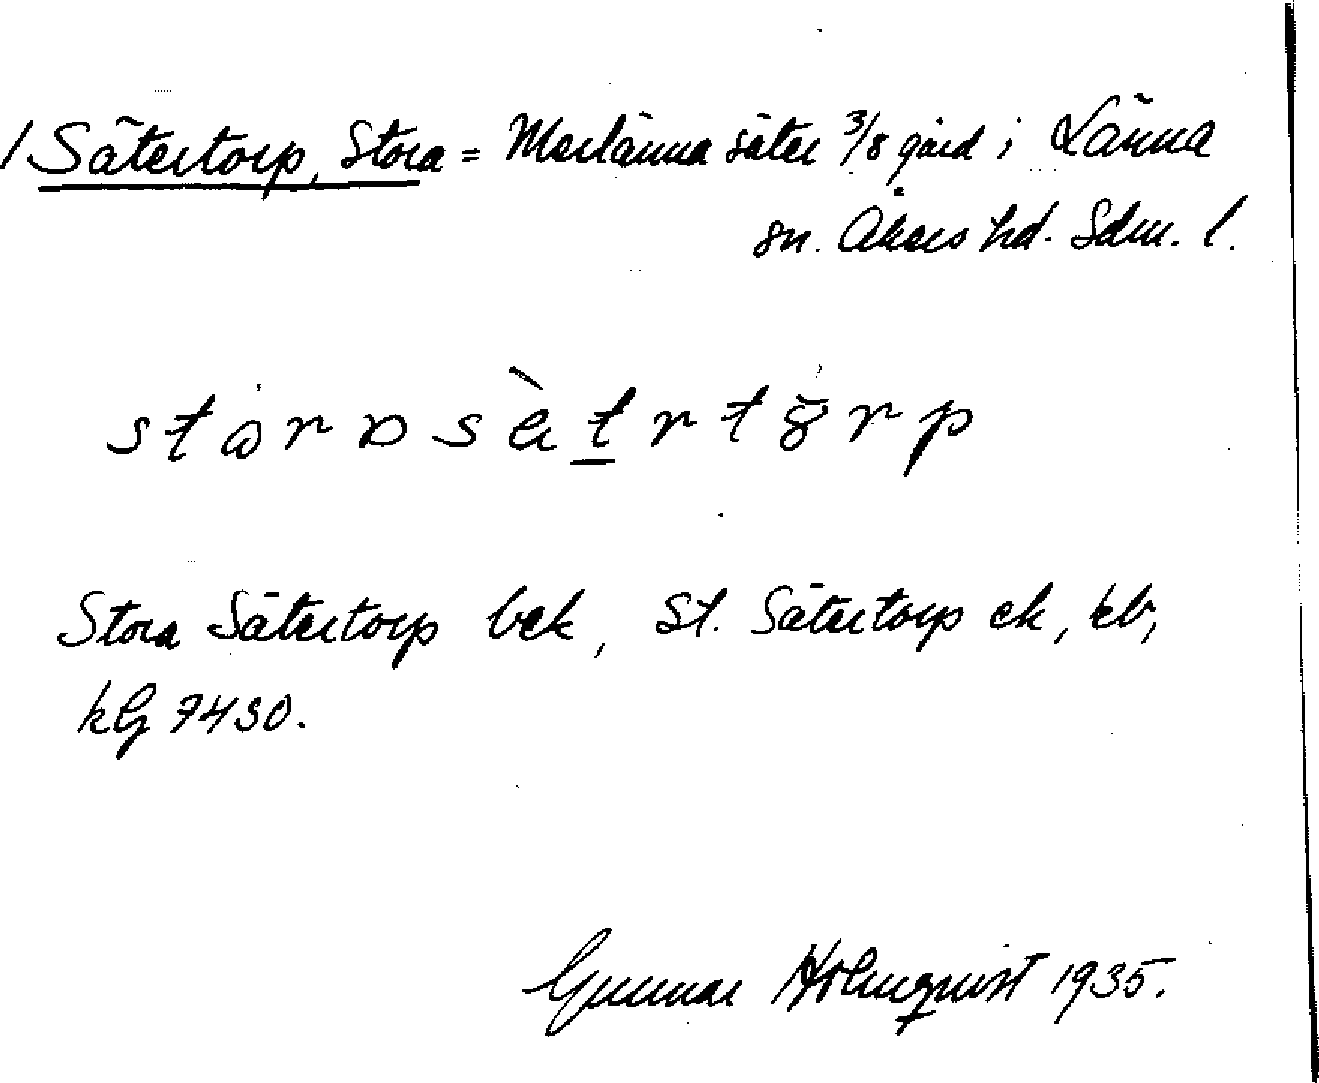 / Sätertorp, Stora = Merlänna säter 3/8 gård i Länna
sn. Åkers hd. Sdm. l.
Stora Sätertorp bek, St. Sätertorp ek, kb,
kG 7430.
Gunnar Holmquist 1935.